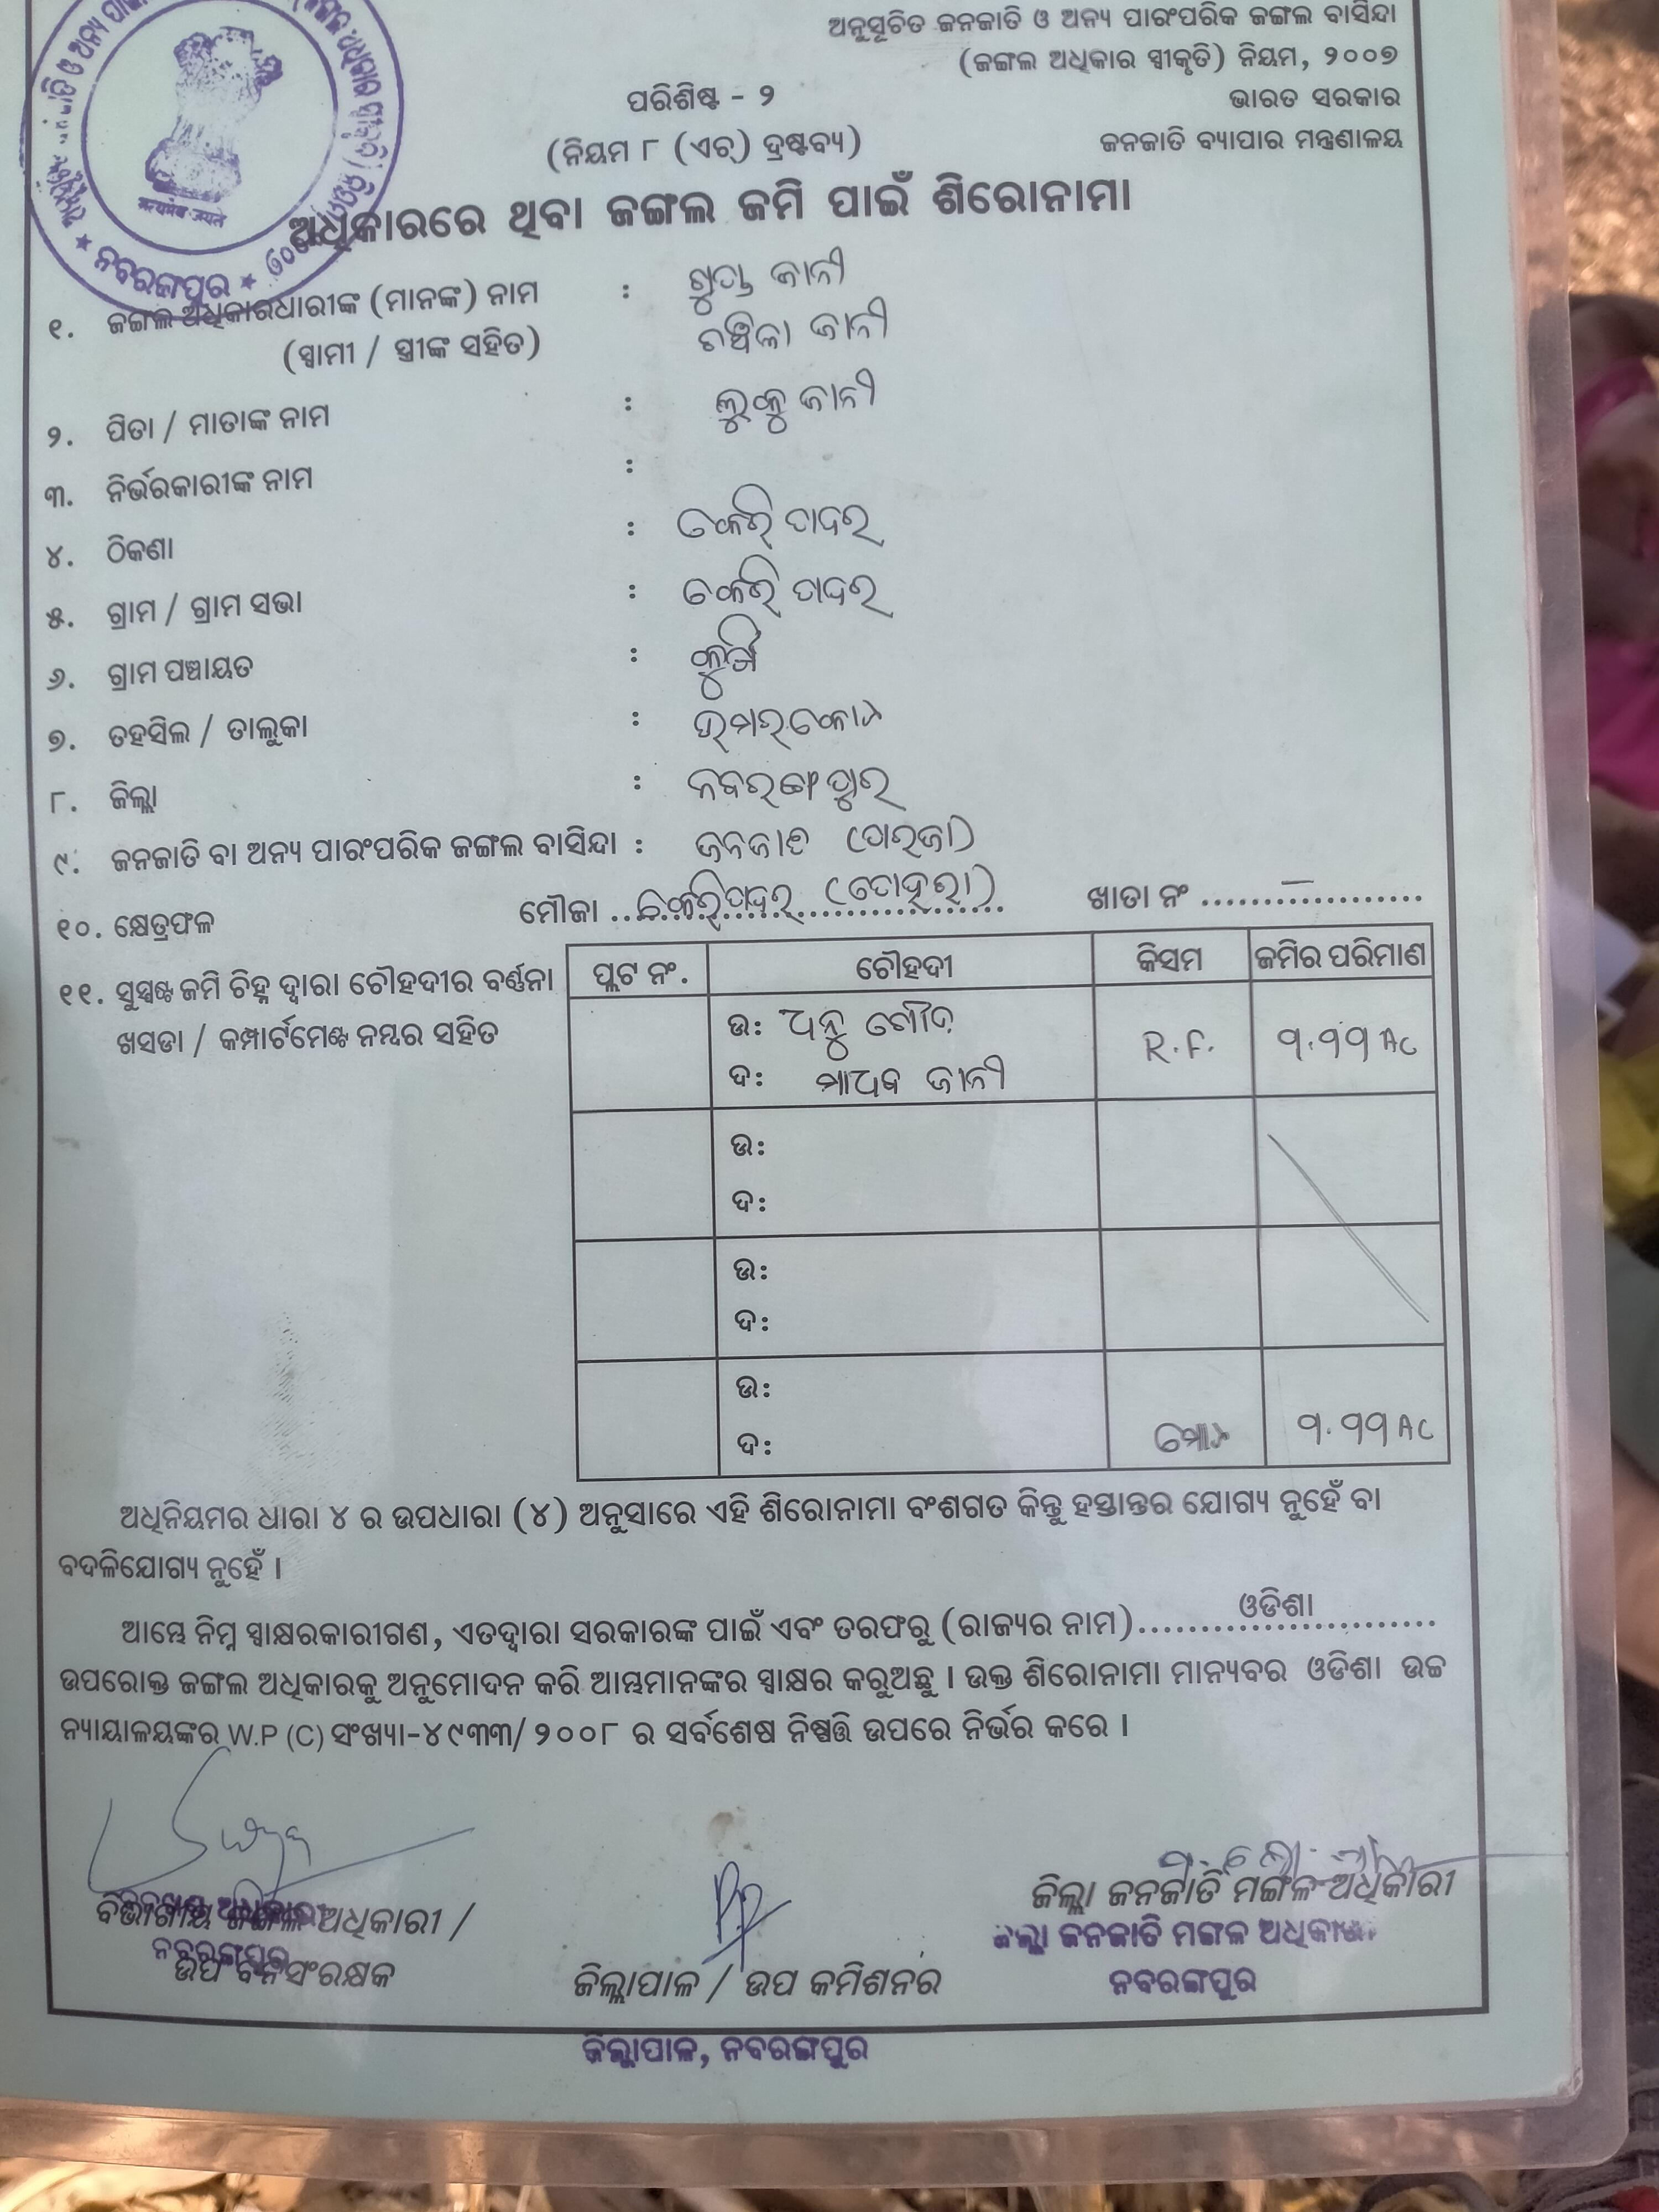 ଅନୁସୂଚିତ ଜନଜାତି ଓ ଅନ୍ୟ ପାରଂପରିକ ଜଙ୍ଗଲ ବାସିନ୍ଦା
(ଜଙ୍ଗଲ ଅଧିକାର ସ୍ୱୀକୃତି) ନିୟମ, ୨୦୦୭
ପରିଶିଷ୍ଟ - ୨
ଭାରତ ସରକାର
(ନିୟମ ୮ (ଏଚ୍) ଦ୍ରଷ୍ଟବ୍ୟ)
ଜନଜାତି ବ୍ୟାପାର ମନ୍ତ୍ରଣାଳୟ
ନବରଙ୍ଗପୁର
ଅଧିକାରରେ ଥିବା ଜଙ୍ଗଲ ଜମି ପାଇଁ ଶିରୋନାମା
୧. ଜଙ୍ଗଲ ଅଧିକାରଧାରୀଙ୍କ (ମାନଙ୍କ) ନାମ : ଜାନୀ
(ସ୍ୱାମୀ / ସ୍ତ୍ରୀଙ୍କ ସହିତ) ଜାନୀ
୨. ପିତା / ମାତାଙ୍କ ନାମ : ଜାନୀ
୩. ନିର୍ଭରକାରୀଙ୍କ ନାମ :
୪. ଠିକଣା : ଚକେରି ପାଦର
୫. ଗ୍ରାମ / ଗ୍ରାମ ସଭା : ଚକେରି ପାଦର
୬. ଗ୍ରାମ ପଞ୍ଚାୟତ :
୭. ତହସିଲ / ତାଲୁକା : ଉମରକୋଟ
୮. ଜିଲ୍ଲା : ନବରଙ୍ଗପୁର
୯. ଜନଜାତି ବା ଅନ୍ୟ ପାରଂପରିକ ଜଙ୍ଗଲ ବାସିନ୍ଦା : ଜନଜାତି (ପାରଜା)
୧୦. କ୍ଷେତ୍ରଫଳ ମୌଜା ଖାତା ନଂ –
୧୧. ସୁସ୍ପଷ୍ଟ ଜମି ଚିହ୍ନ ଦ୍ୱାରା ଚୌହଦୀର ବର୍ଣ୍ଣନା
ଖସଡା / କମ୍ପାର୍ଟମେଣ୍ଟ ନମ୍ବର ସହିତ
ପ୍ଲଟ ନଂ. ଚୌହଦୀ କିସମ ଜମିର ପରିମାଣ
ଉ: ଧନୁ ଗୌଡ R.F. ୧.୧୧ AC
ଦ: ମାଧବ ଜାନୀ
ଉ:
ଦ:
ଉ:
ଦ:
ଉ:
ଦ: ମୋଟ ୧.୧୧ AC
ଅଧିନିୟମର ଧାରା ୪ ର ଉପଧାରା (୪) ଅନୁସାରେ ଏହି ଶିରୋନାମା ବଂଶଗତ କିନ୍ତୁ ହସ୍ତାନ୍ତର ଯୋଗ୍ୟ ନୁହେଁ ବା
ବଦଳିଯୋଗ୍ୟ ନୁହେଁ ।
ଆମ୍ଭେ ନିମ୍ନ ସ୍ୱାକ୍ଷରକାରୀଗଣ, ଏତଦ୍ୱାରା ସରକାରଙ୍କ ପାଇଁ ଏବଂ ତରଫରୁ (ରାଜ୍ୟର ନାମ) ଓଡିଶା
ଉପରୋକ୍ତ ଜଙ୍ଗଲ ଅଧିକାରକୁ ଅନୁମୋଦନ କରି ଆମ୍ଭମାନଙ୍କର ସ୍ୱାକ୍ଷର କରୁଅଛୁ । ଉକ୍ତ ଶିରୋନାମା ମାନ୍ୟବର ଓଡିଶା ଉଚ୍ଚ
ନ୍ୟାୟାଳୟଙ୍କର W.P (C) ସଂଖ୍ୟା-୪୯୩୩/୨୦୦୮ ର ସର୍ବଶେଷ ନିଷ୍ପତ୍ତି ଉପରେ ନିର୍ଭର କରେ ।
ବିଭାଗୀୟ ଜଙ୍ଗଲ ଅଧିକାରୀ /
ନବରଙ୍ଗପୁର
ଉପ ବନସଂରକ୍ଷକ
ଜିଲ୍ଲାପାଳ / ଉପ କମିଶନର
ଜିଲ୍ଲାପାଳ, ନବରଙ୍ଗପୁର
ଜିଲ୍ଲା ଜନଜାତି ମଙ୍ଗଳ ଅଧିକାରୀ
ଜିଲ୍ଲା ଜନଜାତି ମଙ୍ଗଳ ଅଧିକାରୀ
ନବରଙ୍ଗପୁର